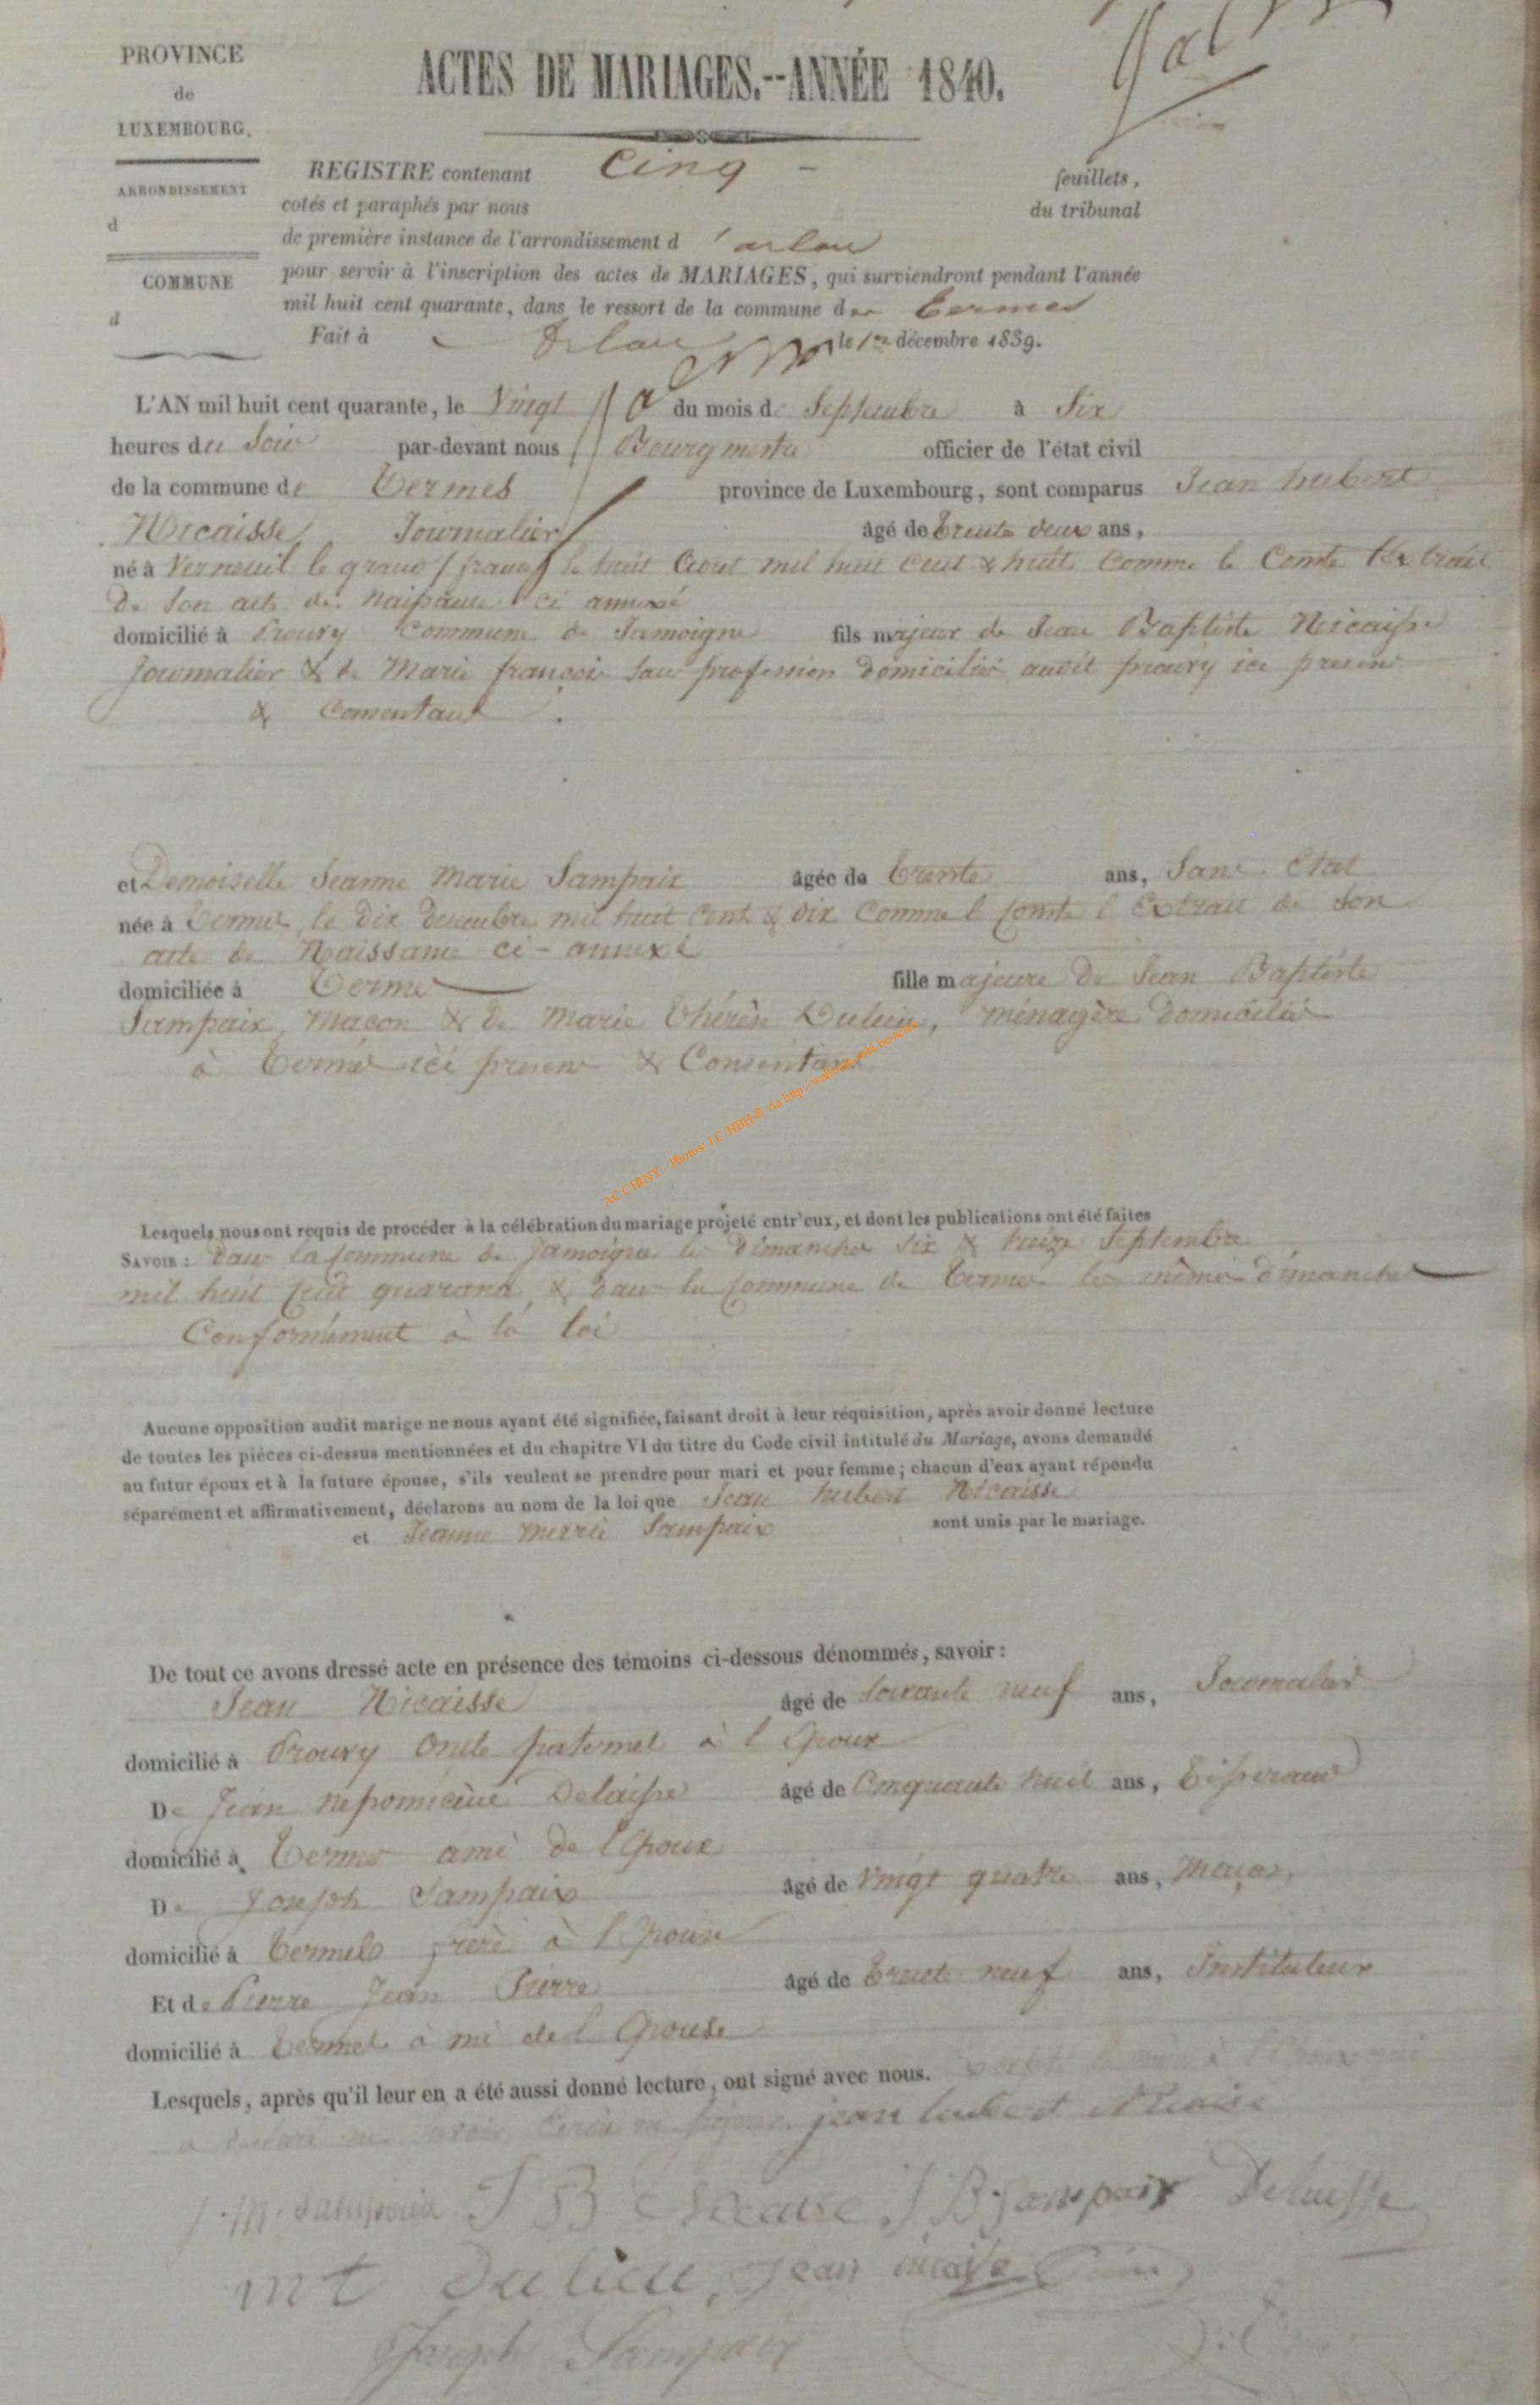 PROVINCE
de
LUXEMBOURG.
ARRONDISSEMENT
d
COMMUNE
d
ACTES DE MARIAGES.--ANNÉE 1840.
REGISTRE contenant Cinq - feuillets,
cotés et paraphés par nous du tribunal
de première instance de l'arrondissement d'arlon
pour servir à l'inscription des actes de MARIAGES, qui surviendront pendant l'année
mil huit cent quarante, dans le ressort de la commune de termes
Fait à Arlon le 1er décembre 1839.
L'AN mil huit cent quarante, le Vingt du mois de Septembre à Six
heures du Soir par-devant nous Bourgmestre officier de l'état civil
de la commune de Termes province de Luxembourg, sont comparus Jean hubert
Nicaisse Journalier âgé de trente deux ans,
né à Verneuil le grand (france) le huit aout mil huit cent & huit Comme le Conste l'Extrait
de Son acte de Naissance ci annexé
domicilié à Prouvy Commune de Jamoigne fils majeur de Jean Baptiste Nicaisse
Journalier & de Marie françois Sans profession domiciliés audit prouvy ici presens
& Consentans.
et Demoiselle Jeanne Marie Sampaix âgée de trente ans, Sans Etat
née à termes, le dix decembre mil huit Cent & dix Comme le Conste l'Extrait de Son
acte de Naissance ci-annexé
domiciliée à Termes fille majeure de Jean Baptiste
Sampaix, maçon & de Marie thérèse Dulieu, ménagère domiciliés
à termes ici presens & Consentans
ACCHINY - Photos J.C. HBH & via http://
Lesquels nous ont requis de procéder à la célébration du mariage projeté entr'eux, et dont les publications ont été faites
SAVOIR: dans la Commune de Jamoigne les dimanches six & treize Septembre
mil huit Cent quarante, & dans la Commune de termes les mêmes dimanches
Conformément à la loi
Aucune opposition audit marige ne nous ayant été signifiée, faisant droit à leur réquisition, après avoir donné lecture
de toutes les pièces ci-dessus mentionnées et du chapitre VI du titre du Code civil intitulé du Mariage, avons demandé
au futur époux et à la future épouse, s'ils veulent se prendre pour mari et pour femme; chacun d'eux ayant répondu
séparément et affirmativement, déclarons au nom de la loi que Jean hubert Nicaisse
et Jeanne marie Sampaix sont unis par le mariage.
De tout ce avons dressé acte en présence des témoins ci-dessous dénommés, savoir:
Jean Nicaisse âgé de Soixante neuf ans, Journalier
domicilié à Prouvy Oncle paternel à l'Epoux
De Jean nepomicène Delaisse âgé de Cinquante huit ans, tisserand
domicilié à Termes ami de l'Epoux
De Joseph Sampaix âgé de vingt quatre ans, Maçon,
domicilié à termes frère à l'Epouse
Et de Pierre Jean Pierre âgé de trente neuf ans, Instituteur
domicilié à termes ami de l'Epouse
Lesquels, après qu'il leur en a été aussi donné lecture, ont signé avec nous. Excepté la mère à l'Epoux qui
a declaré ne savoir Ecrire ni signer. jean hubert Nicaise
j.m. Sampaix J B Nicaise J.B Sampaix Delaisse
mt Dulieu, Jean nicaise
Joseph Sampaix